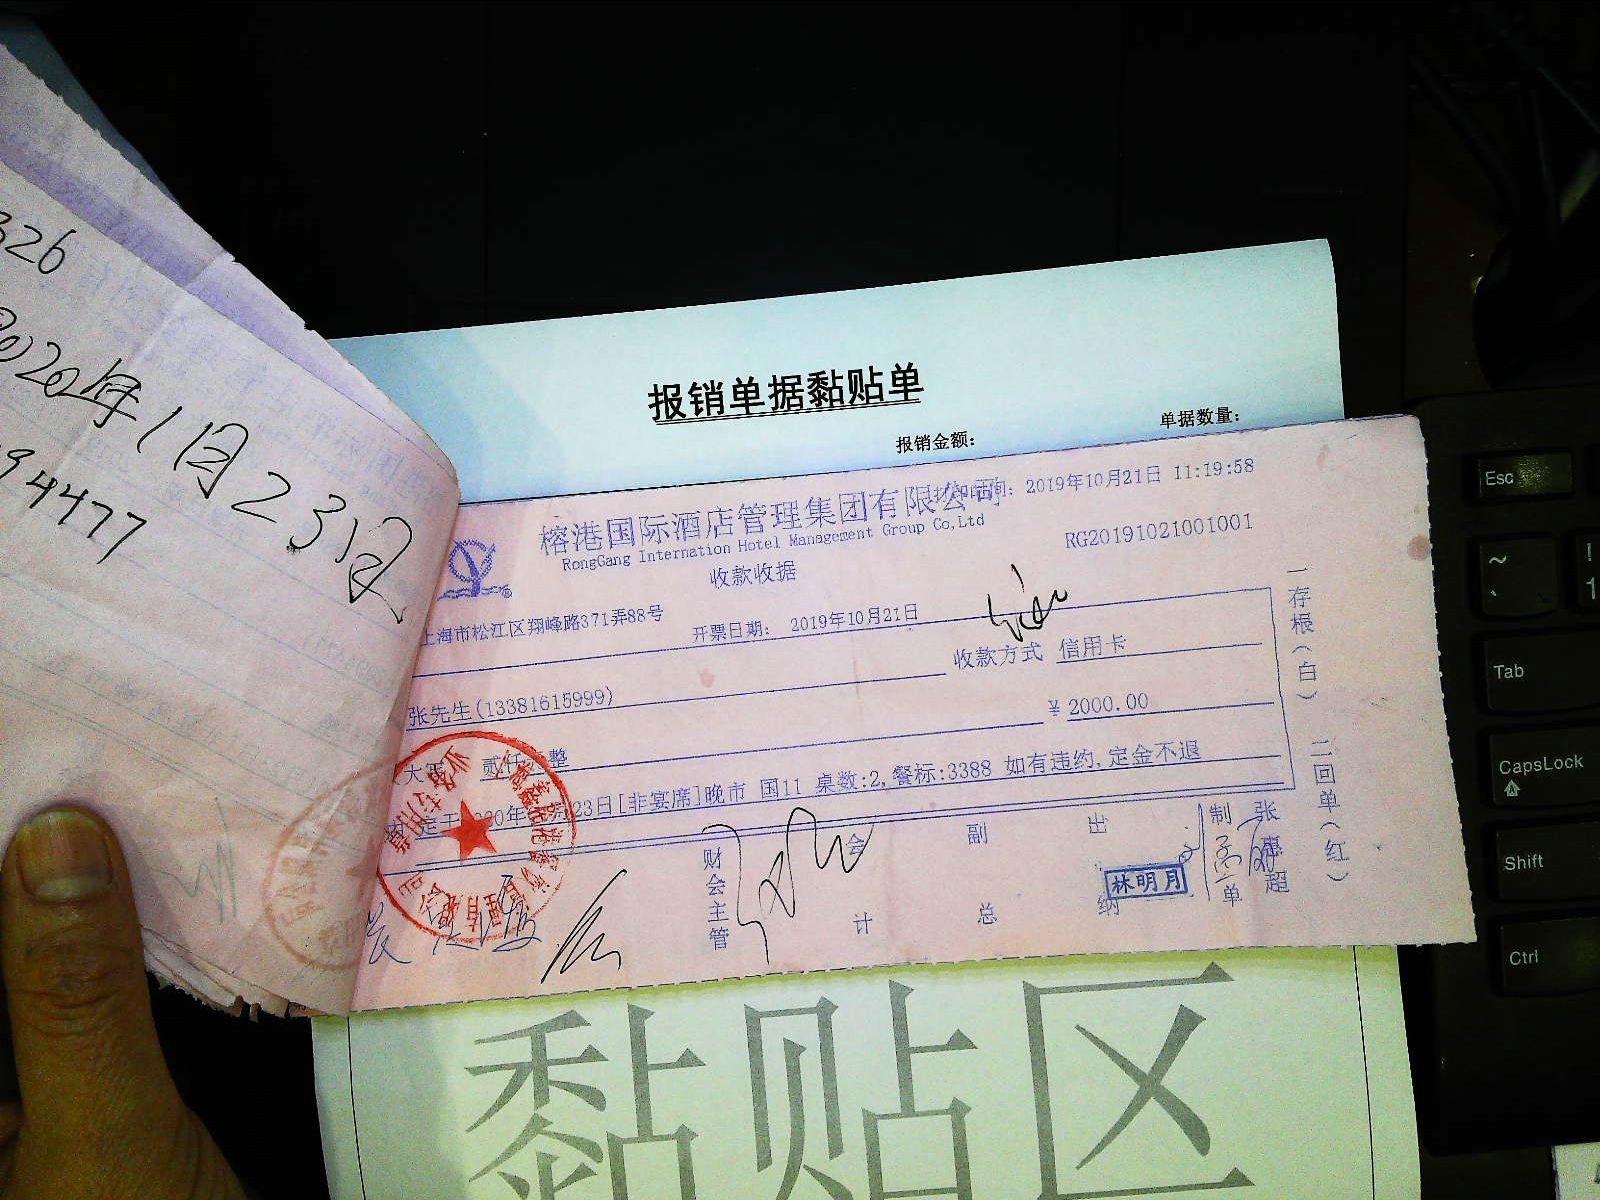 326
2020年1月23日
94477
报销单据黏贴单
单据数量：
报销金额：
2019年10月21日 11:19:58
榕港国际酒店管理集团有限公司
RongGang Internation Hotel Management Group Co,Ltd
RG20191021001001
收款收据
上海市松江区翔峰路371弄88号
开票日期： 2019年10月21日
收款方式 信用卡
张先生(13381615999)
¥ 2000.00
大写 贰仟 整
定于 20年 月23日[非宴席]晚市 国11 桌数:2,餐标:3388 如有违约,定金不退
财会主管
会计
副总
出纳
林明月
制单
张惠超
一存根（白）
二回单（红）
黏贴区
Esc
~
`
!
1
Tab
CapsLock
Shift
Ctrl